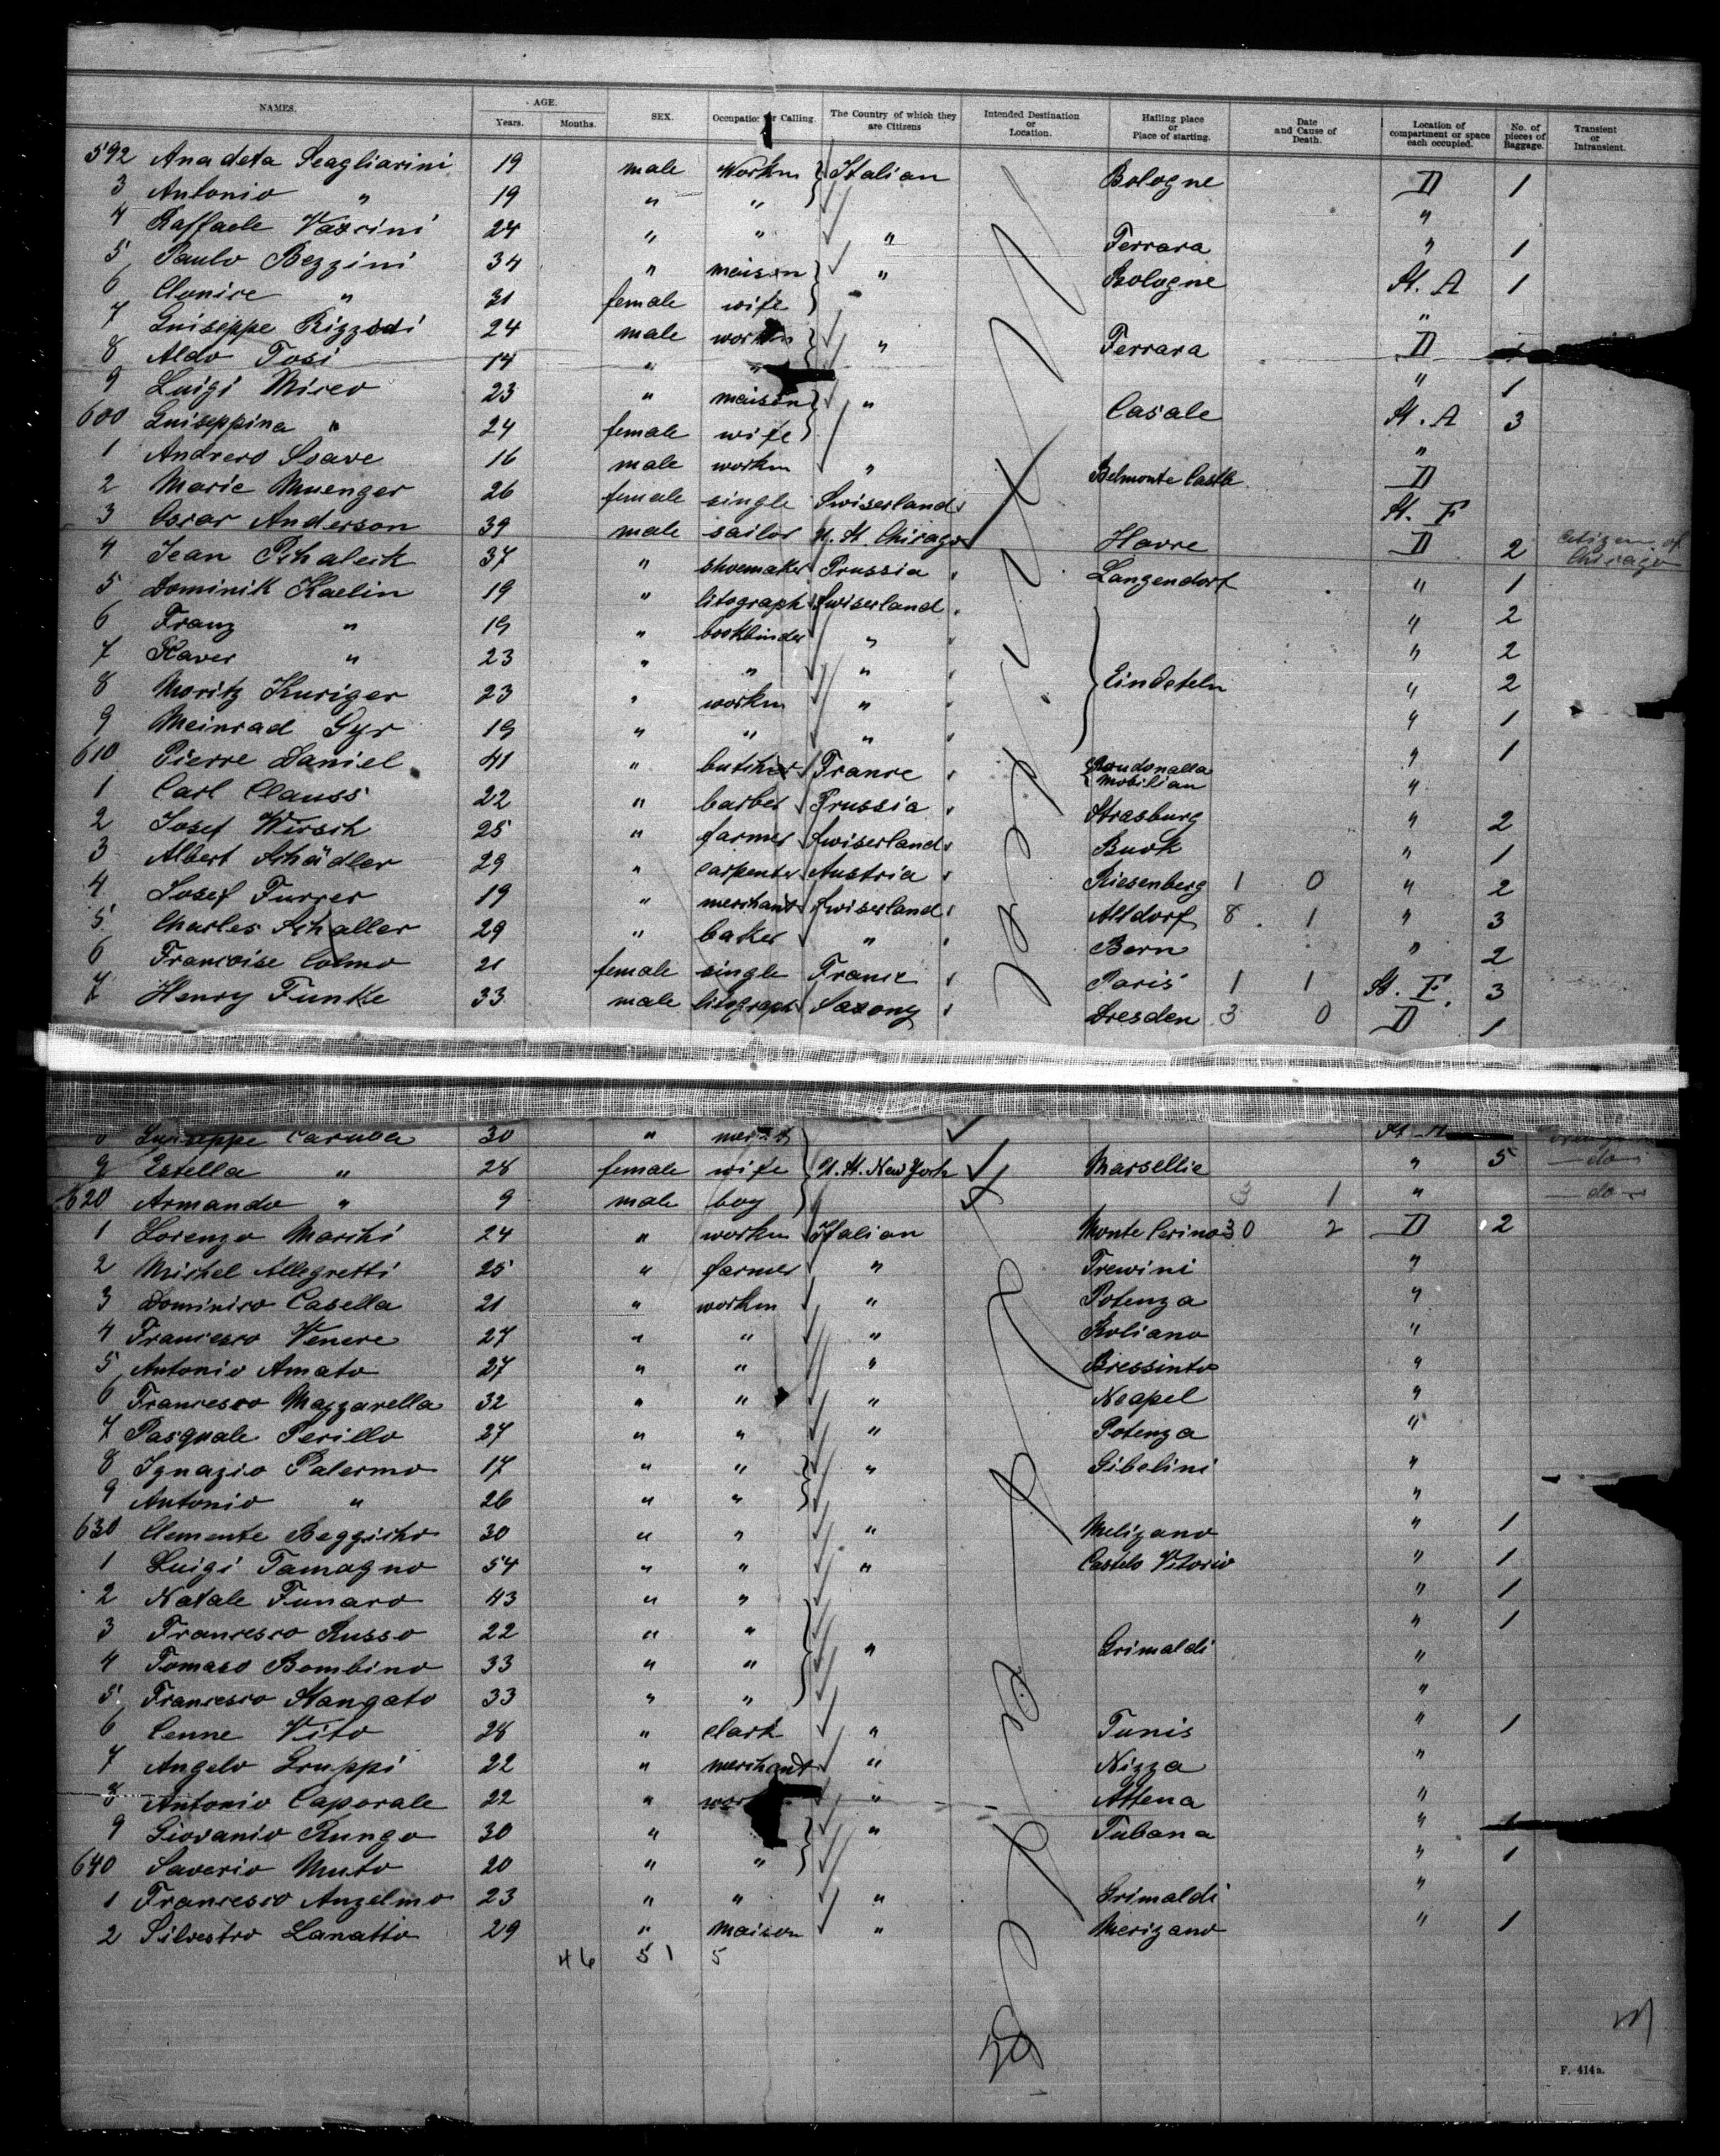 NAMES. AGE. Years. Months. SEX. Occupation or Calling. The Country of which they are Citizens Intended Destination or Location. Hailing place or Place of starting. Date and Cause of Death. Location of compartment or space each occupied. No. of pieces of Baggage. Transient or Intransient.
592 Anadeta Scagliarini 19 male Workm Italian Bologne D 1
3 Antonio " 19 " " "
4 Raffaele Vassini 24 " " " Ferrara " 1
5 Paulo Bezzini 34 " maison " Bologne St. A 1
6 Clonice " 31 female wife "
7 Guiseppe Rizzodi 24 male workm " Ferrara D
8 Aldo Tosi 14 " " "
9 Luigi Mirco 23 " maison " 1
600 Guiseppina " 24 female wife Casale St. A 3
1 Andrero Soave 16 male workm " "
2 Marie Muenger 26 female single Swiserland Belmonte Castle D
3 Oscar Anderson 39 male sailor U. St. Chicago Havre St. F D 2 Citizen of Chicago
4 Jean Pchaleck 37 " shoemaker Prussia Langendorf " 1
5 Dominik Kaelin 19 " litograph Swiserland " 2
6 Franz " 19 " bookbinder " " 2
7 Xaver " 23 " " " Eindeteln " 2
8 Moritz Kuriger 23 " workm " " 1
9 Meinrad Gyr 19 " " " " 1
610 Pierre Daniel 41 " butcher France mobilian "
1 Carl Clauss 22 " barber Prussia Strasburg " 2
2 Josef Wirsch 25 " farmer Swiserland Buok " 1
3 Albert Schädler 29 " carpenter Austria Riesenberg 1 0 " 2
4 Josef Furrer 19 " merchant Swiserland Altdorf 8 . 1 " 3
5 Charles Schaller 29 " baker " Bern " 2
6 Francoise Colmo 21 female single France Paris 1 1 St. F. 3
7 Henry Funke 33 male litograph Saxony Dresden 3 0 D 1
8 Guiseppe Caruba 30 "
9 Estella " 28 female wife U. St. New York Marsellie " 5 -do-
620 Armando " 9 male boy 3 1 " -do-
1 Lorenzo Marchi 24 " workm Italian Monte Cerino 30 2 D 2
2 Michel Allegretti 25 " farmer " Trewini "
3 Dominico Casella 21 " workm " Potenza "
4 Francesco Venere 27 " " " Boliano "
5 Antonio Amato 27 " " " Bressinto "
6 Francesco Mazzarella 32 " " " Neapel "
7 Pasquale Perillo 27 " " " Potenza "
8 Ignazio Palermo 17 " " " Gibelini "
9 Antonio " 26 " " "
630 Clemente Beggicho 30 " " " Melizano " 1
1 Luigi Tamagno 54 " " " Castelo Vitorio " 1
2 Natale Funaro 43 " " " 1
3 Francesco Russo 22 " " " Grimaldi " 1
4 Tomaso Bombino 33 " " "
5 Francesco Stangato 33 " " "
6 Cenne Vito 28 " clark " Tunis " 1
7 Angelo Gruppi 22 " merchant " Nizza "
8 Antonio Caporale 22 " " Attena "
9 Giovanio Rungo 30 " " Tubana " 1
640 Saverio Muto 20 " " " 1
1 Francesco Anzelmo 23 " " " Grimaldi "
2 Silvestro Lanatto 29 " maison " Merizano " 1
46 51 5
F. 414a.